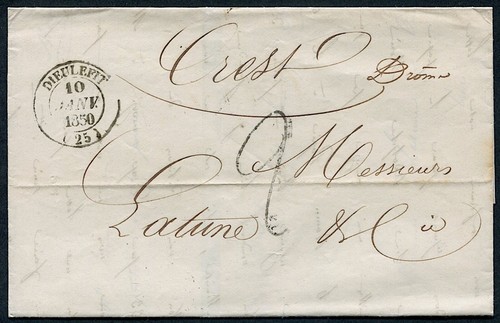 DIEULEFIT
10
JANV
1850
(25)
Crest Drôme
2
Messieurs
Latune & Cie